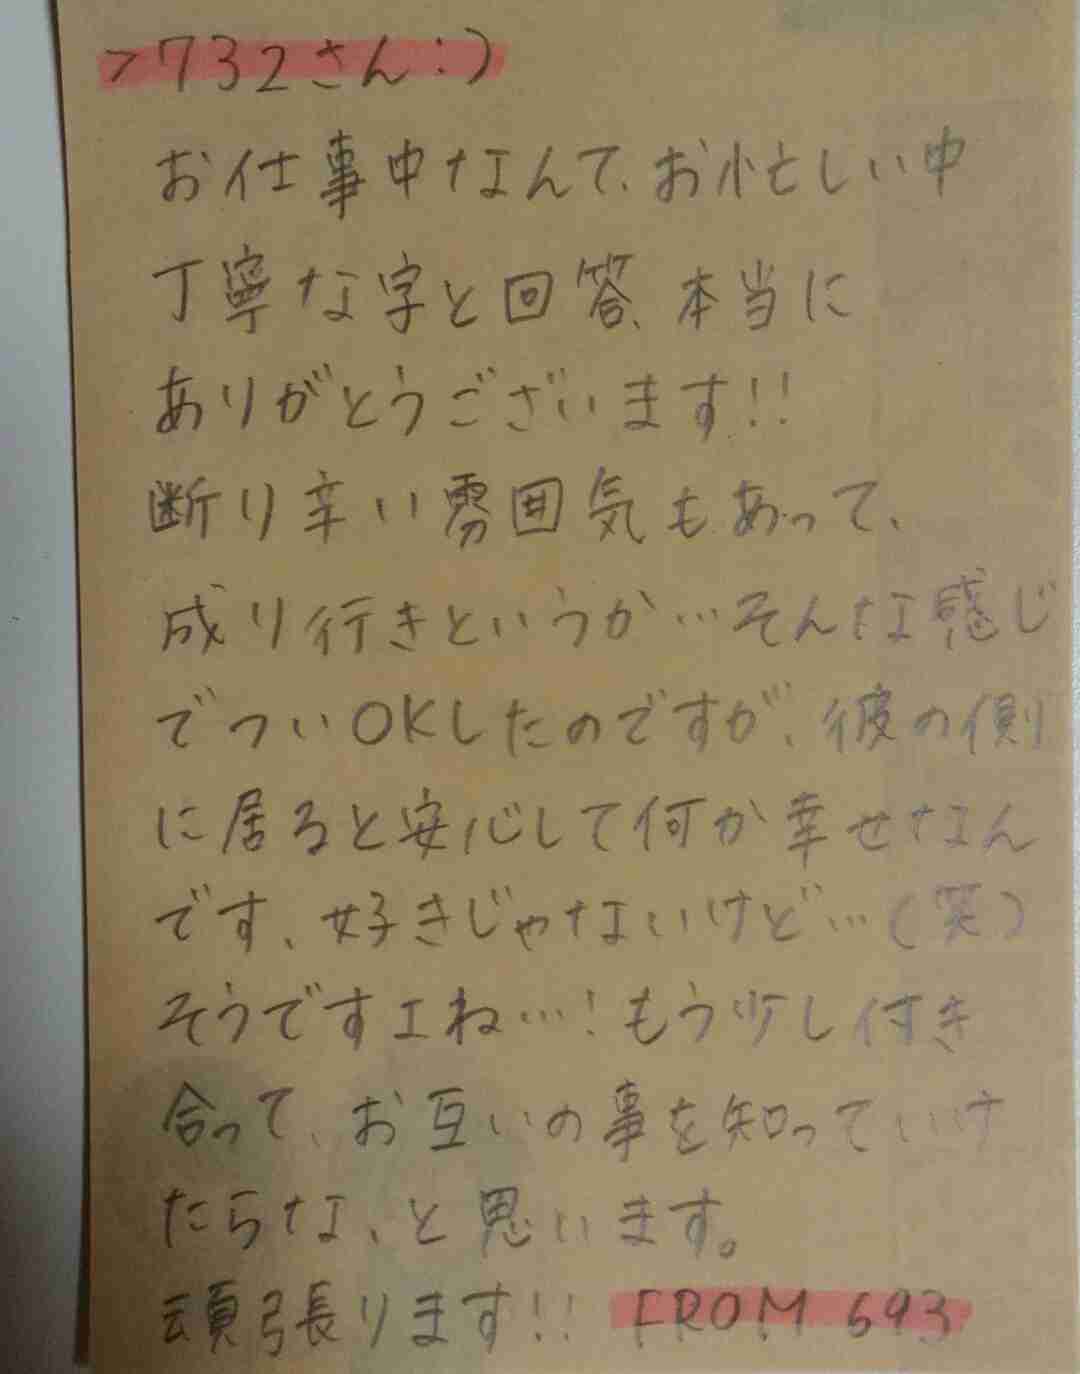 >732さん:)
お仕事中なんて、お忙しい中
丁寧な字と回答、本当に
ありがとうございます!!
断り辛い雰囲気もあって、
成り行きというか…そんな感じ
でついOKしたのですが、彼の側
に居ると安心して何か幸せなん
です、好きじゃないけど…(笑)
そうですよね…!もう少し付き
合って、お互いの事を知っていけ
たらな、と思います。
頑張ります!! FROM 693